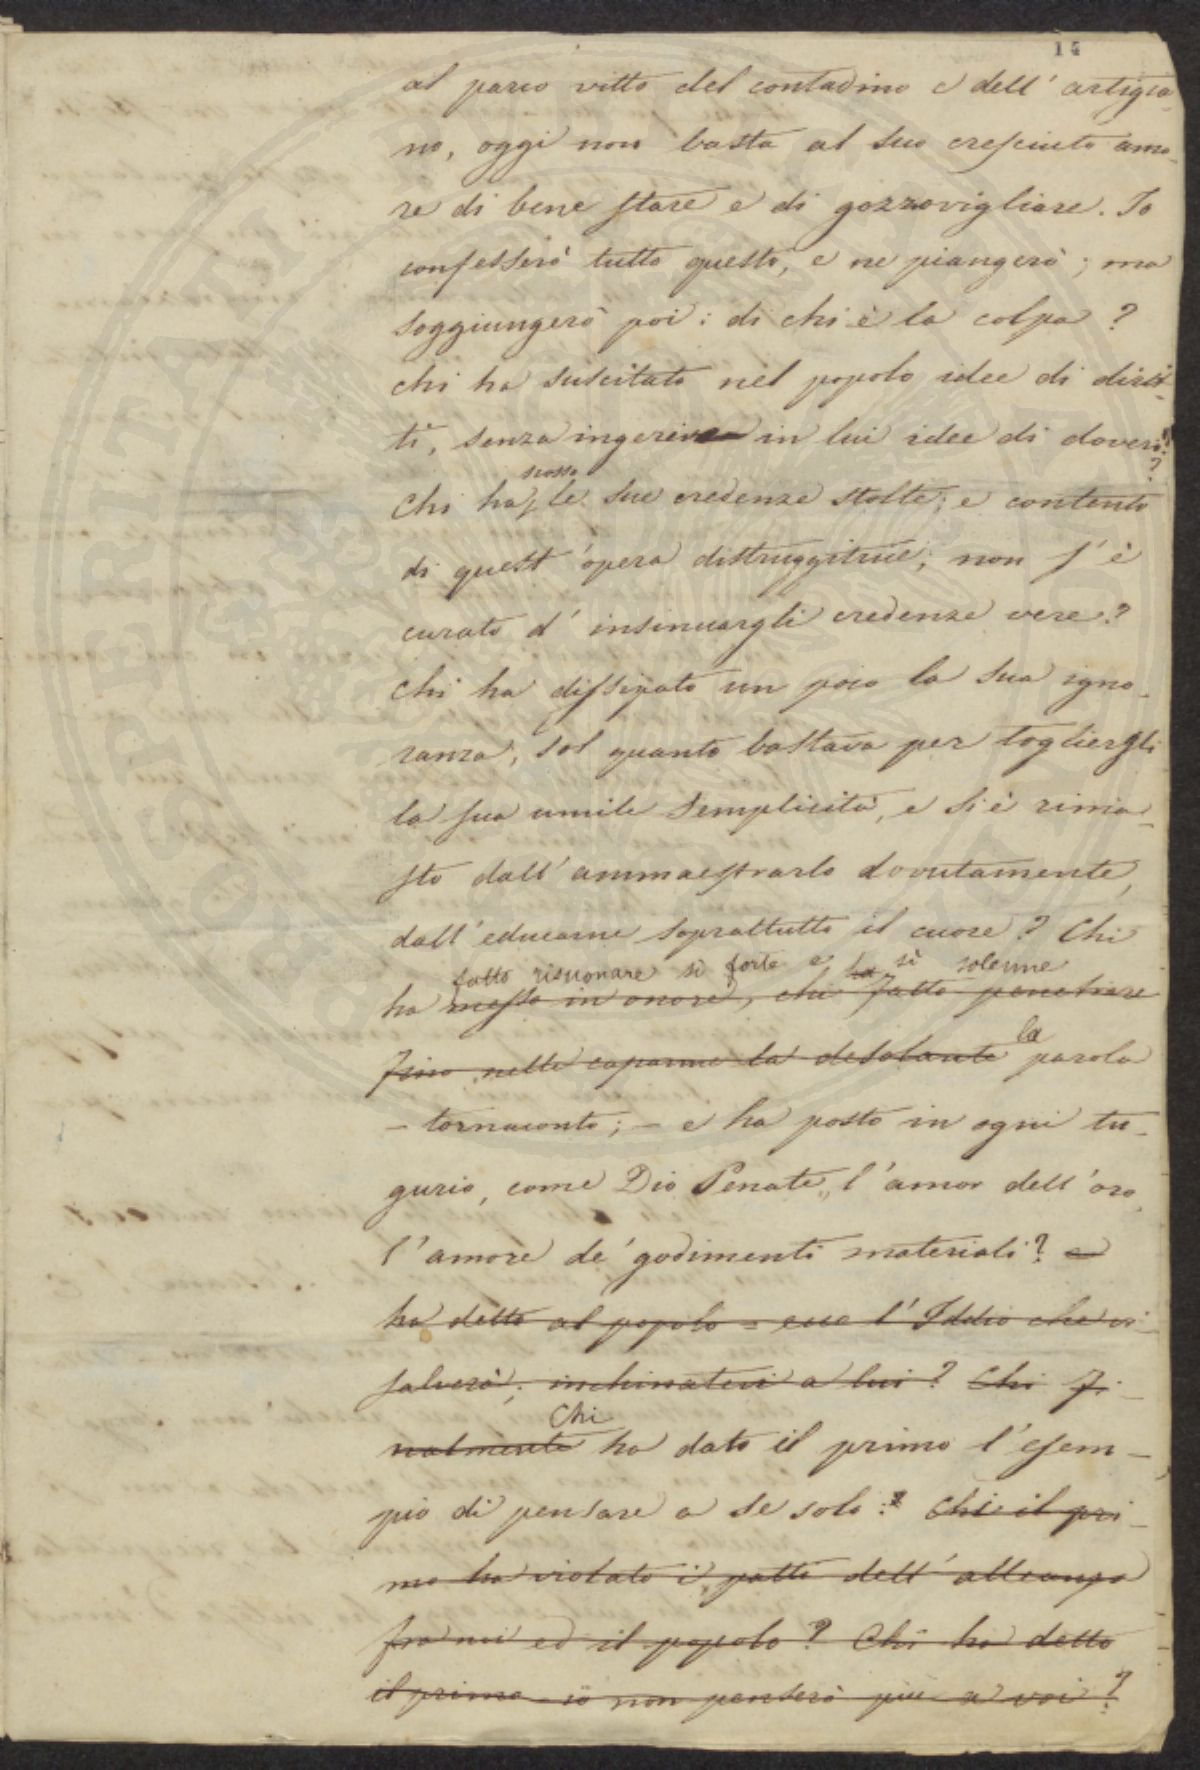 14
al parco vitto del contadino e dell' artigia-
no, oggi non basta al suo cresciuto amo-
re di bene stare e di gozzovigliare. Io
confesserò tutto questo, e ne piangerò; ma
soggiungerò poi: di chi è la colpa?
chi ha suscitato nel popolo idee di dirit-
ti, senza ingerire in lui idee di doveri?
scosso
Chi ha le sue credenze stolte; e contento
di quest' opera distruggitrice, non s' è
curato d' insinuargli credenze vere?
Chi ha dissipato un poco la sua igno-
ranza, sol quanto bastava per togliergli
la sua umile semplicità, e si è rima-
sto dall' ammaestrarlo dovutamente,
dall' educarne soprattutto il cuore? Chi
fatto risuonare sì forte e ha sì solenne
ha messo in onore, chi fatto penetrare
fino nelle capanne la desolante la parola
- tornaconto; - e ha posto in ogni tu-
gurio, come Dio Penate, l' amor dell' oro,
l' amore de' godimenti materiali? e
ha detto al popolo - ecco l' Iddio che vi
salverà; inchinatevi a lui? Chi fi-
Chi
nalmente ha dato il primo l' esem-
pio di pensare a se solo:? Chi il pri-
mo ha violato i patti dell' alleanza
fra noi ed il popolo? Chi ha detto
il primo - io non penserò più a voi?
PROSPERITATI PUBLICAE